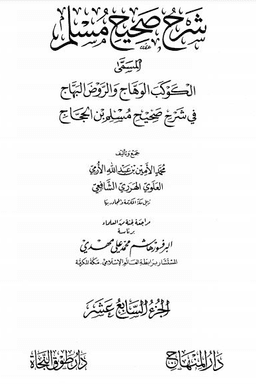 شرح صحيح مسلم
المسمى
الكوكب الوهاج والروض البهاج
في شرح صحيح مسلم بن الحجاج
جمع وتأليف
محمد الأمين بن عبد الله الأرمي
العلوي الهرري الشافعي
نزيل مكة المكرمة والمجاور بها
مراجعة لجنة من العلماء
برئاسة
البرفسور هاشم محمد علي مهدي
المستشار برابطة العالم الإسلامي - مكة المكرمة
الجزء السابع عشر
دار المنهاج
دار طوق النجاة